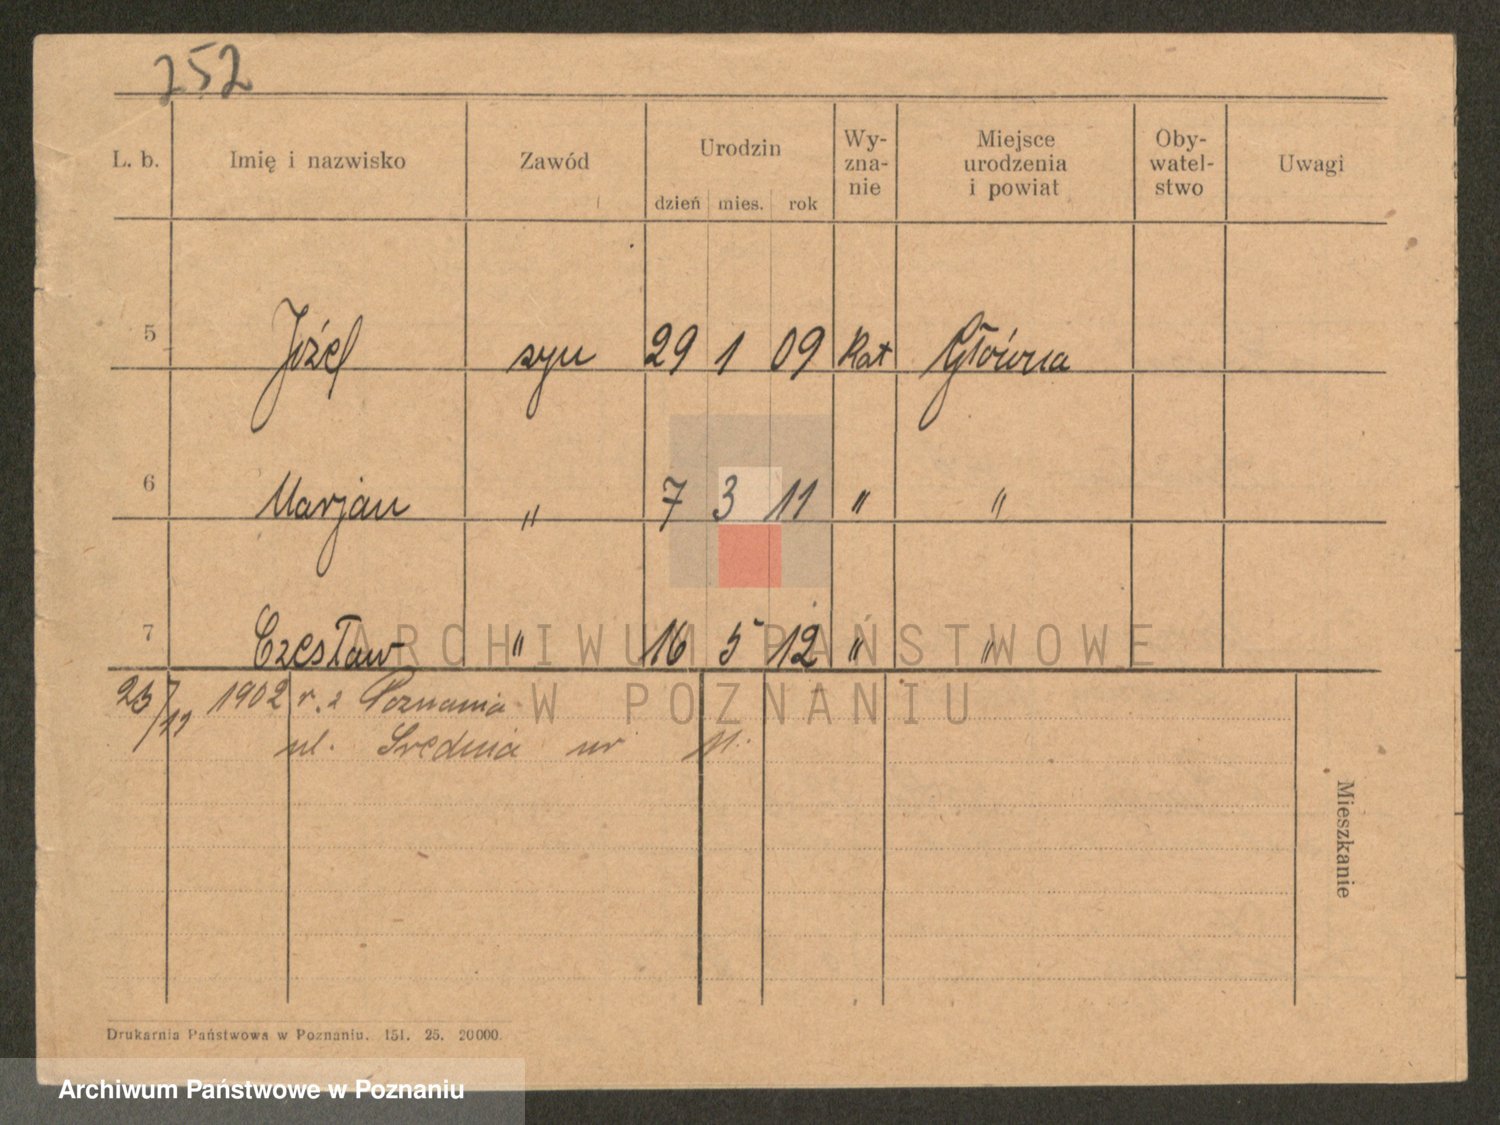 252
L. b. Imię i nazwisko Zawód Urodzin dzień mies. rok Wy-zna-nie Miejsce urodzenia i powiat Oby-watel-stwo Uwagi
5 Józef syn 29 1 09 kat Główna
6 Marjan " 7 3 11 " "
7 Czesław " 16 5 12 " "
ARCHIWUM PAŃSTWOWE
W POZNANIU
1902 r. z Poznania
ul. Średnia nr 11.
Mieszkanie
Drukarnia Państwowa w Poznaniu. 151. 25. 20000.
Archiwum Państwowe w Poznaniu